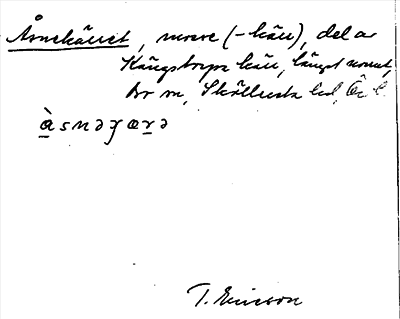 Åsnekärret, morve (-kärr), del av
Kängstorps kärr, längst norrut,
Bo sn, Sköllersta hd, Ör l.
àsnəɟærə
T. Ericson